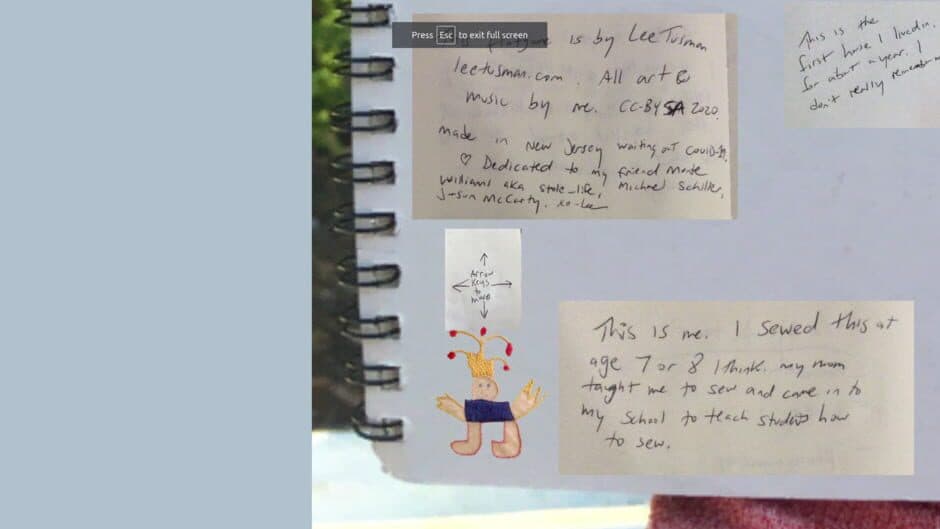 Press Esc to exit full screen
flatgame is by Lee Tusman
leetusman.com. All art &
music by me. CC-BY SA 2020.
made in New Jersey waiting out COVID-19.
♡ Dedicated to my friend
Williams aka stole_life, Michael
J-son McCarty. xo-Lee
This is the
first house I lived in.
for about a year. I
don't really remember
Arrow
Keys
to
move
This is me. I sewed this at
age 7 or 8 I think. my mom
taught me to sew and came in to
my school to teach students how
to sew.